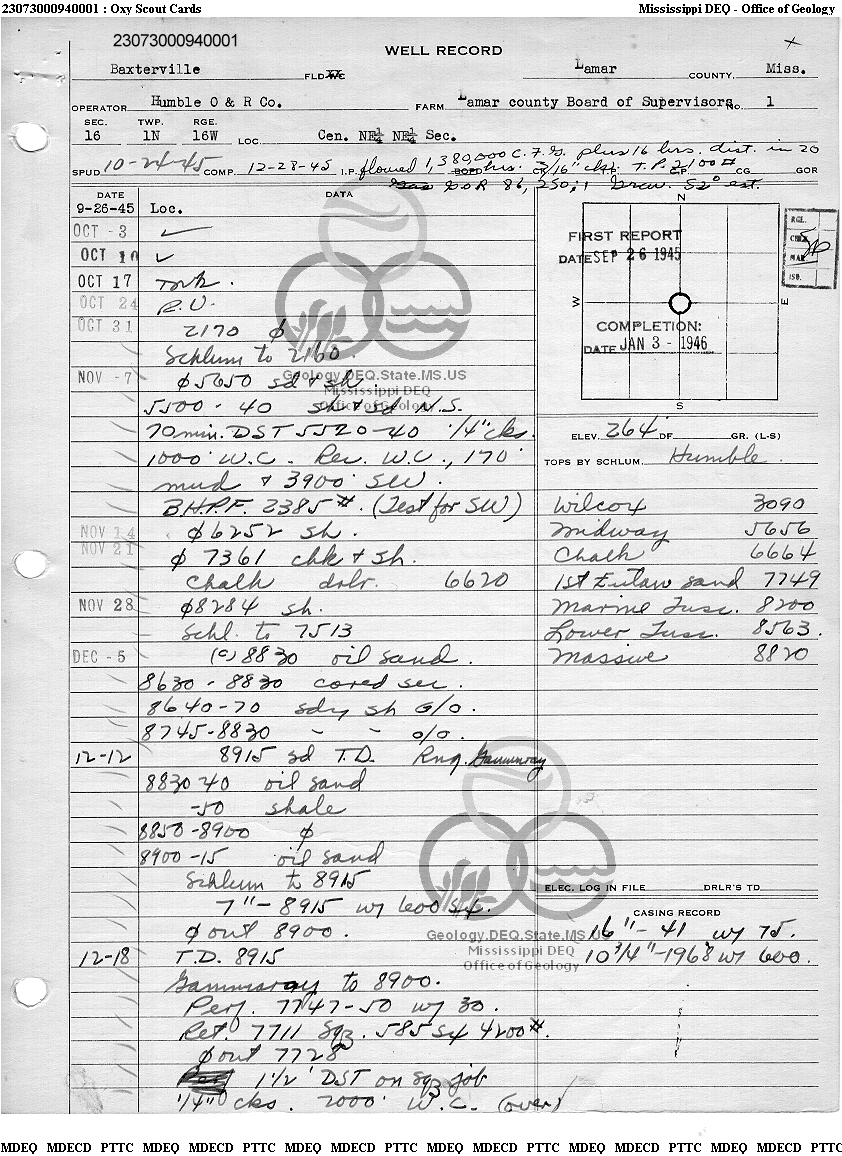 23073000940001 : Oxy Scout Cards Mississippi DEQ - Office of Geology
23073000940001
WELL RECORD
Baxterville FLD WC Lamar COUNTY, Miss.
OPERATOR Humble O & R Co. FARM Lamar county Board of Supervisors No. 1
SEC. TWP. RGE.
16 1N 16W LOC. Cen. NE¼ NE¼ Sec.
SPUD 10-24-45 COMP. 12-28-45 I.P. flowed 1,380,000 C.F.G. plus 16 bbls. dist. in 20
BOPD hrs. CK 3/16" chk. T.P. 2100# CP CG GOR
Gas GOR 86,250:1 Grav. 52° est.
DATE DATA
9-26-45 Loc.
OCT - 3 ✓
OCT 10 ✓
OCT 17
OCT 24 R.U.
OCT 31 2170 φ
Schlum to 2160.
NOV - 7 φ 5650 sd & sh.
5500 - 40 sh & sd N.S.
70 min. DST 5520-40 1/4" cks.
1000' W.C. Rec. W.C., 170'
mud & 3900' SW.
BHPF. 2385#. (Test for SW)
NOV 14 φ 6252 sh.
NOV 21 φ 7361 chk & sh.
Chalk drlr. 6620
NOV 28 φ 8284 sh.
Schl. to 7513
DEC - 5 (c) 8830 oil sand.
8630 - 8830 cored sec.
8640-70 sdy sh G/O.
8745-8830 - - o/o.
12-12 8915 sd T.D. Rng. Gammaray
8830-40 oil sand
-50 shale
8850-8900 φ
8900-15 oil sand
Schlum to 8915
7"- 8915 w/ 600 sx.
φ out 8900.
12-18 T.D. 8915
Gammaray to 8900.
Perf. 7747-50 w/ 30.
Ret. 7711 Sqz. 585 sx 4200#.
φ out 7728
1 1/2' DST on sqz job
1/4" cks. 2000' W.C. (over)
N
W
E
S
FIRST REPORT
DATE SEP 26 1945
COMPLETION:
DATE JAN 3 - 1946
RGL.
CHK.
MAP
ISB.
ELEV. 264' DF. GR. (L-S)
TOPS BY SCHLUM. Humble.
Wilcox 3090
Midway 5656
Chalk 6664
1st Eutaw sand 7749
Marine Tusc. 8200
Lower Tusc. 8563.
Massive 8820
ELEC. LOG IN FILE DRLR'S TD
CASING RECORD
16" - 41 w/ 75.
10 3/4" - 1968 w/ 600.
Geology.DEQ.State.MS.US
Mississippi DEQ
Office of Geology
Geology.DEQ.State.MS.US
Mississippi DEQ
Office of Geology
MDEQ MDECD PTTC MDEQ MDECD PTTC MDEQ MDECD PTTC MDEQ MDECD PTTC MDEQ MDECD PTTC MDEQ MDECD PTTC